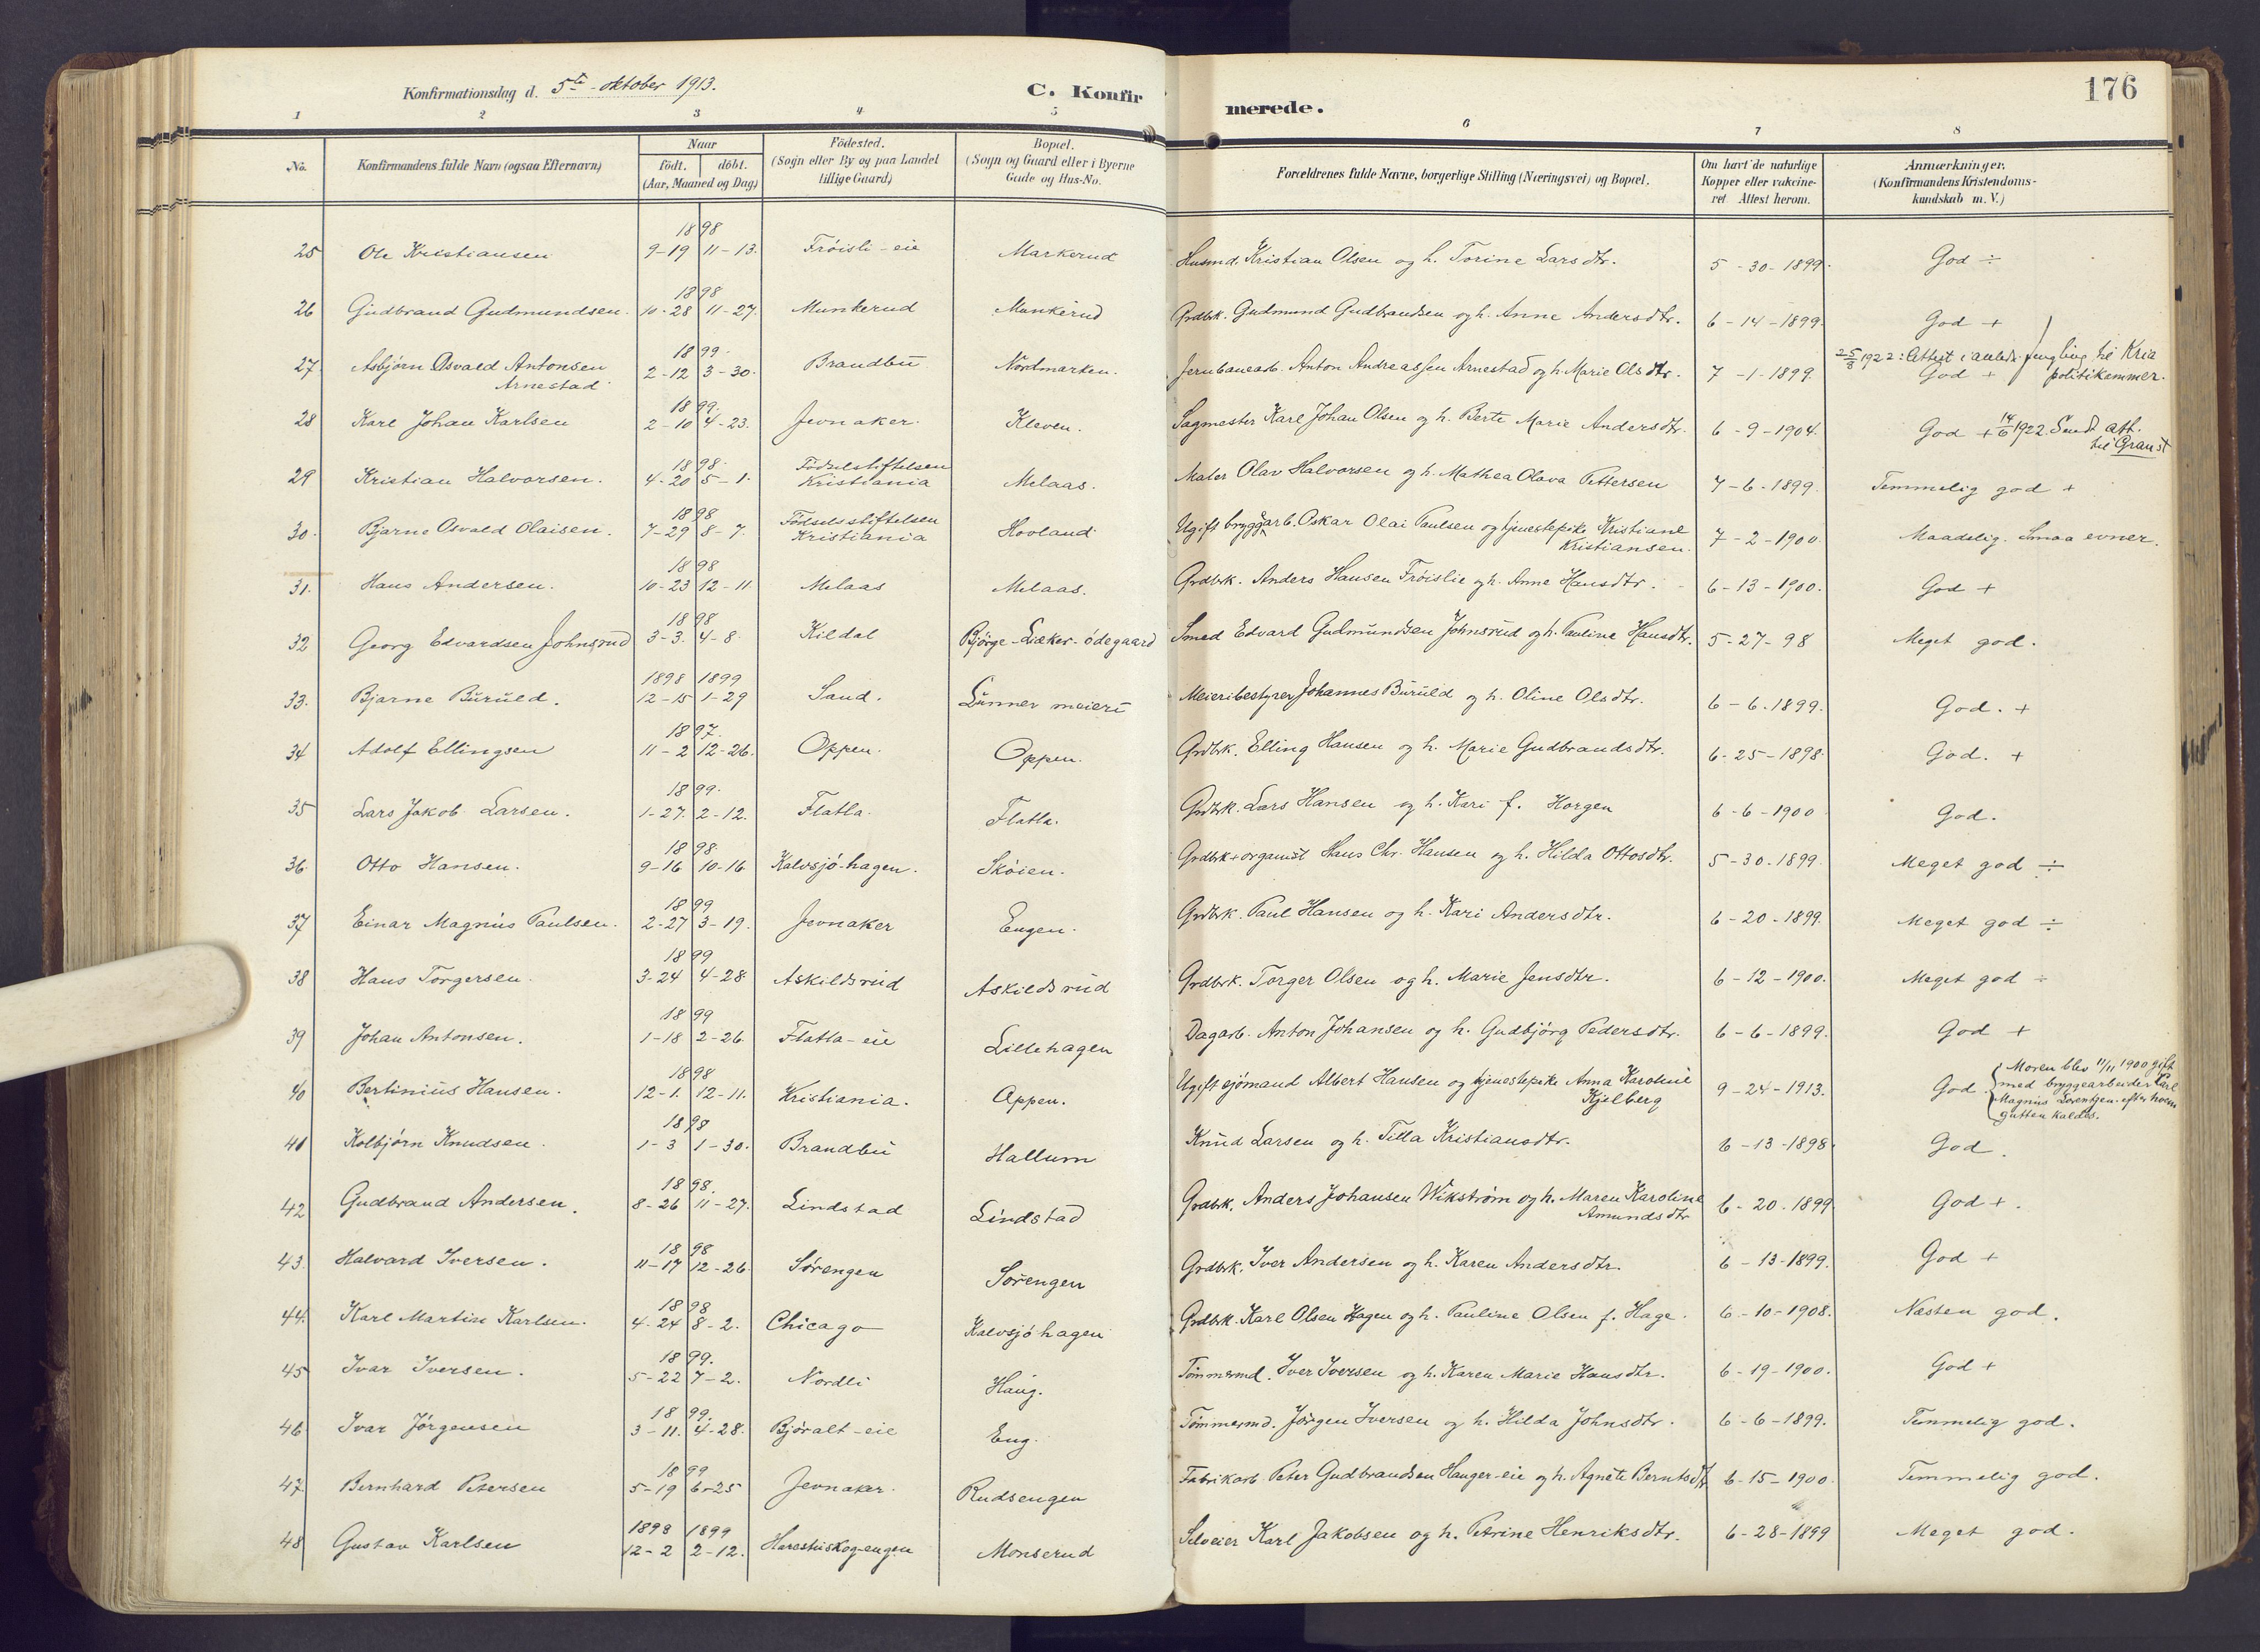 Konfirmationsdag d. 5te oktober 1913.
C. Konfir
merede.
176
1 2 3 4 5 6 7 8
No. Konfirmandens fulde Navn (ogsaa Efternavn) Naar født. døbt. (Aar, Maaned og Dag) Fødested. (Sogn eller By og paa Landet tillige Gaard) Bopæl. (Sogn og Gaard eller i Byerne Gade og Hus-No. Forældrenes fulde Navne, borgerlige Stilling (Næringsvei) og Bopæl. Om havt de naturlige Kopper eller vakcineret Attest herom. Anmærkninger. (Konfirmandens Kristendomskundskab m. V.)
25 Ole Kristiansen 1898 9-19 11-13. Frøisli-eie Markerud Husmd. Kristian Olsen og h. Torine Larsdtr. 5-30-1899. God ÷
26 Gudbrand Gudmundsen. 1898 10-28 11-27. Munkerud Munkerud Grdbrk. Gudmund Gudbrandsen og h. Anne Andersdtr. 6-14-1899. God +
27. Asbjørn Osvald Antonsen Arnestad 1899. 2-12 3-30. Brandbu Nordmarken. Jernbanearb. Anton Andreassen Arnestad og h. Marie Olsdtr. 7-1-1899. 25/8 1922: Attest i anledn. fengling til Kria politikammer. God +
28 Karl Johan Karlsen 1899. 2-10 4-23. Jevnaker. Kleven. Sagmester Karl Johan Olsen og h. Berte Marie Andersdtr. 6-9-1904. God + 14/6 1922. Sendt att. til Gran st
29 Kristian Halvorsen. 1898. 4-20 5-1. Fødselstiftelsen Kristiania Melaas. Maler Olav Halvorsen og h. Mathea Olava Pettersen 7-6-1899. Temmelig god +
30. Bjarne Osvald Olaisen. 1898 7-29 8-7. Fødselsstiftelsen Kristiania Hovland Ugift bryggarb. Oskar Olai Paulsen og tjenestepike Kristiane Kristiansen. 7-2-1900. Maadelig. Smaa evner.
31. Hans Andersen. 1898 10-23 12-11. Melaas Melaas. Grdbrk. Anders Hansen Frøislie og h. Anne Hansdtr. 6-13-1900. God +
32 Georg Edvardsen Johnsrud 1898 3-3. 4-8. Kildal Bjørge-Læker-ødegaard Smed Edvard Gudmundsen Johnsrud og h. Pauline Hansdtr. 5-27-98 Meget god.
33. Bjarne Buruld. 1898 1899 12-15 1-29 Sand. Lunner meieri Meieribestyrer Johannes Buruld og h. Oline Olsdtr. 6-6.1899. God. +
34 Adolf Ellingsen 1897. 11-2 12-26. Oppen. Oppen. Grdbrk. Elling Hansen og h. Marie Gudbrandsdtr. 6-25-1898. God. +
35 Lars Jakob Larsen. 1899. 1-27. 2-12. Flatla. Flatla. Grdbrk. Lars Hansen og h. Kari f. Horgen 6-6-1900 God.
36. Otto Hansen. 1898. 9-16 10-16 Kalvsjø-hagen. Skøien. Grdbrk + organist Hans Chr. Hansen og h. Hilda Ottosdtr. 5-30-1899. Meget god ÷
37 Einar Magnus Paulsen. 1899 2-27 3-19. Jevnaker Engen. Grdbrk. Paul Hansen og h. Kari Andersdtr. 6-20-1899. Meget god ÷
38 Hans Torgersen. 1899 3-24 4-28 Askildsrud Askildsrud Grdbrk. Torger Olsen og h. Marie Jensdtr. 6-12-1900. Meget god ÷
39 Johan Antonsen. 1899 1-18 2-26. Flatla-eie Lillehagen Dagarb. Anton Johansen og h. Gudbjørg Pedersdtr. 6-6-1899. God +
40 Bertinius Hansen. 1898 12-1. 12-11. Kristiania. Oppen. Ugift sjømand Albert Hansen og tjenestepike Anna Karoline Kjelberg 9-24-1913. God. Moren blev 11/11 1900 gift med bryggearbeider Carl Magnus Lorentzen. efter hvem gutten kaldes.
41 Kolbjørn Knudsen. 1898 1-3 1-30. Brandbu Hallum Knud Larsen og h. Tilla Kristiansdtr. 6-13-1898. God.
42 Gudbrand Andersen. 1898. 8-26 11-27. Lindstad Lindstad Grdbrk. Anders Johansen Wikstrøm og h. Maren Karoline Amundsdtr 6-20.1899 God +.
43. Halvard Iversen. 1898 11-17 12-26. Sørengen Sørengen Grdbrk. Iver Andersen og h. Karen Andersdtr. 6-13-1899. God +
44. Karl Martin Karlsen. 1898 4-24 8-2. Chicago Kalvsjøhagen Grdbrk. Karl Olsen Hagen og h. Pauline Olsen f. Hage. 6-10-1908. Næsten god.
45 Ivar Iversen. 1899. 5-22 7-2. Nordli Haug. Tømmermd. Iver Iversen og h. Karen Marie Hansdtr. 6-19-1900. God +
46 Ivar Jørgensen 1899. 3-11. 4-28. Bjøralt-eie Eng. Tømmermd. Jørgen Iversen og h. Hilda Johnsdtr. 6-6-1899. Temmelig god.
47. Bernhard Petersen 1899 5-19 6-25 Jevnaker. Rudsengen Fabrikarb. Peter Gudbrandsen Hauger-eie og h. Agnete Berntsdtr 6-15-1900. Temmelig god.
48 Gustav Karlsen 1898 1899 12-2 2-12. Harestuskog-engen Monserud Selveier Karl Jakobsen og h. Petrine Henriksdtr. 6-28-1899 Meget god.